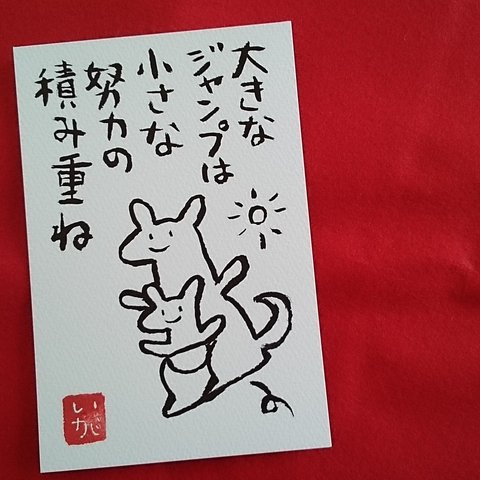 大きな
ジャンプは
小さな
努力の
積み重ね